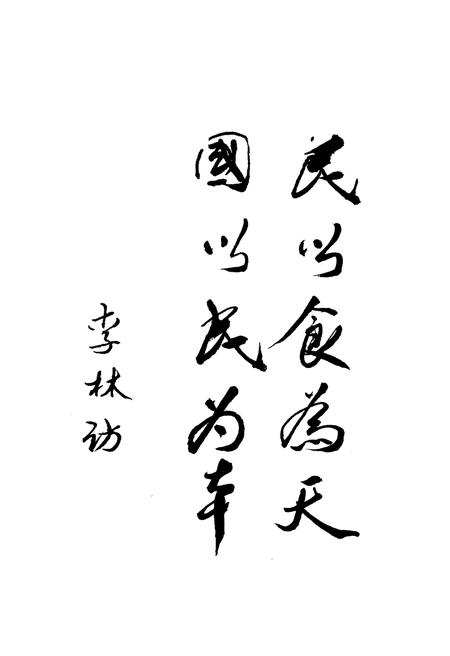 民以食為天
國以民为本
李林访